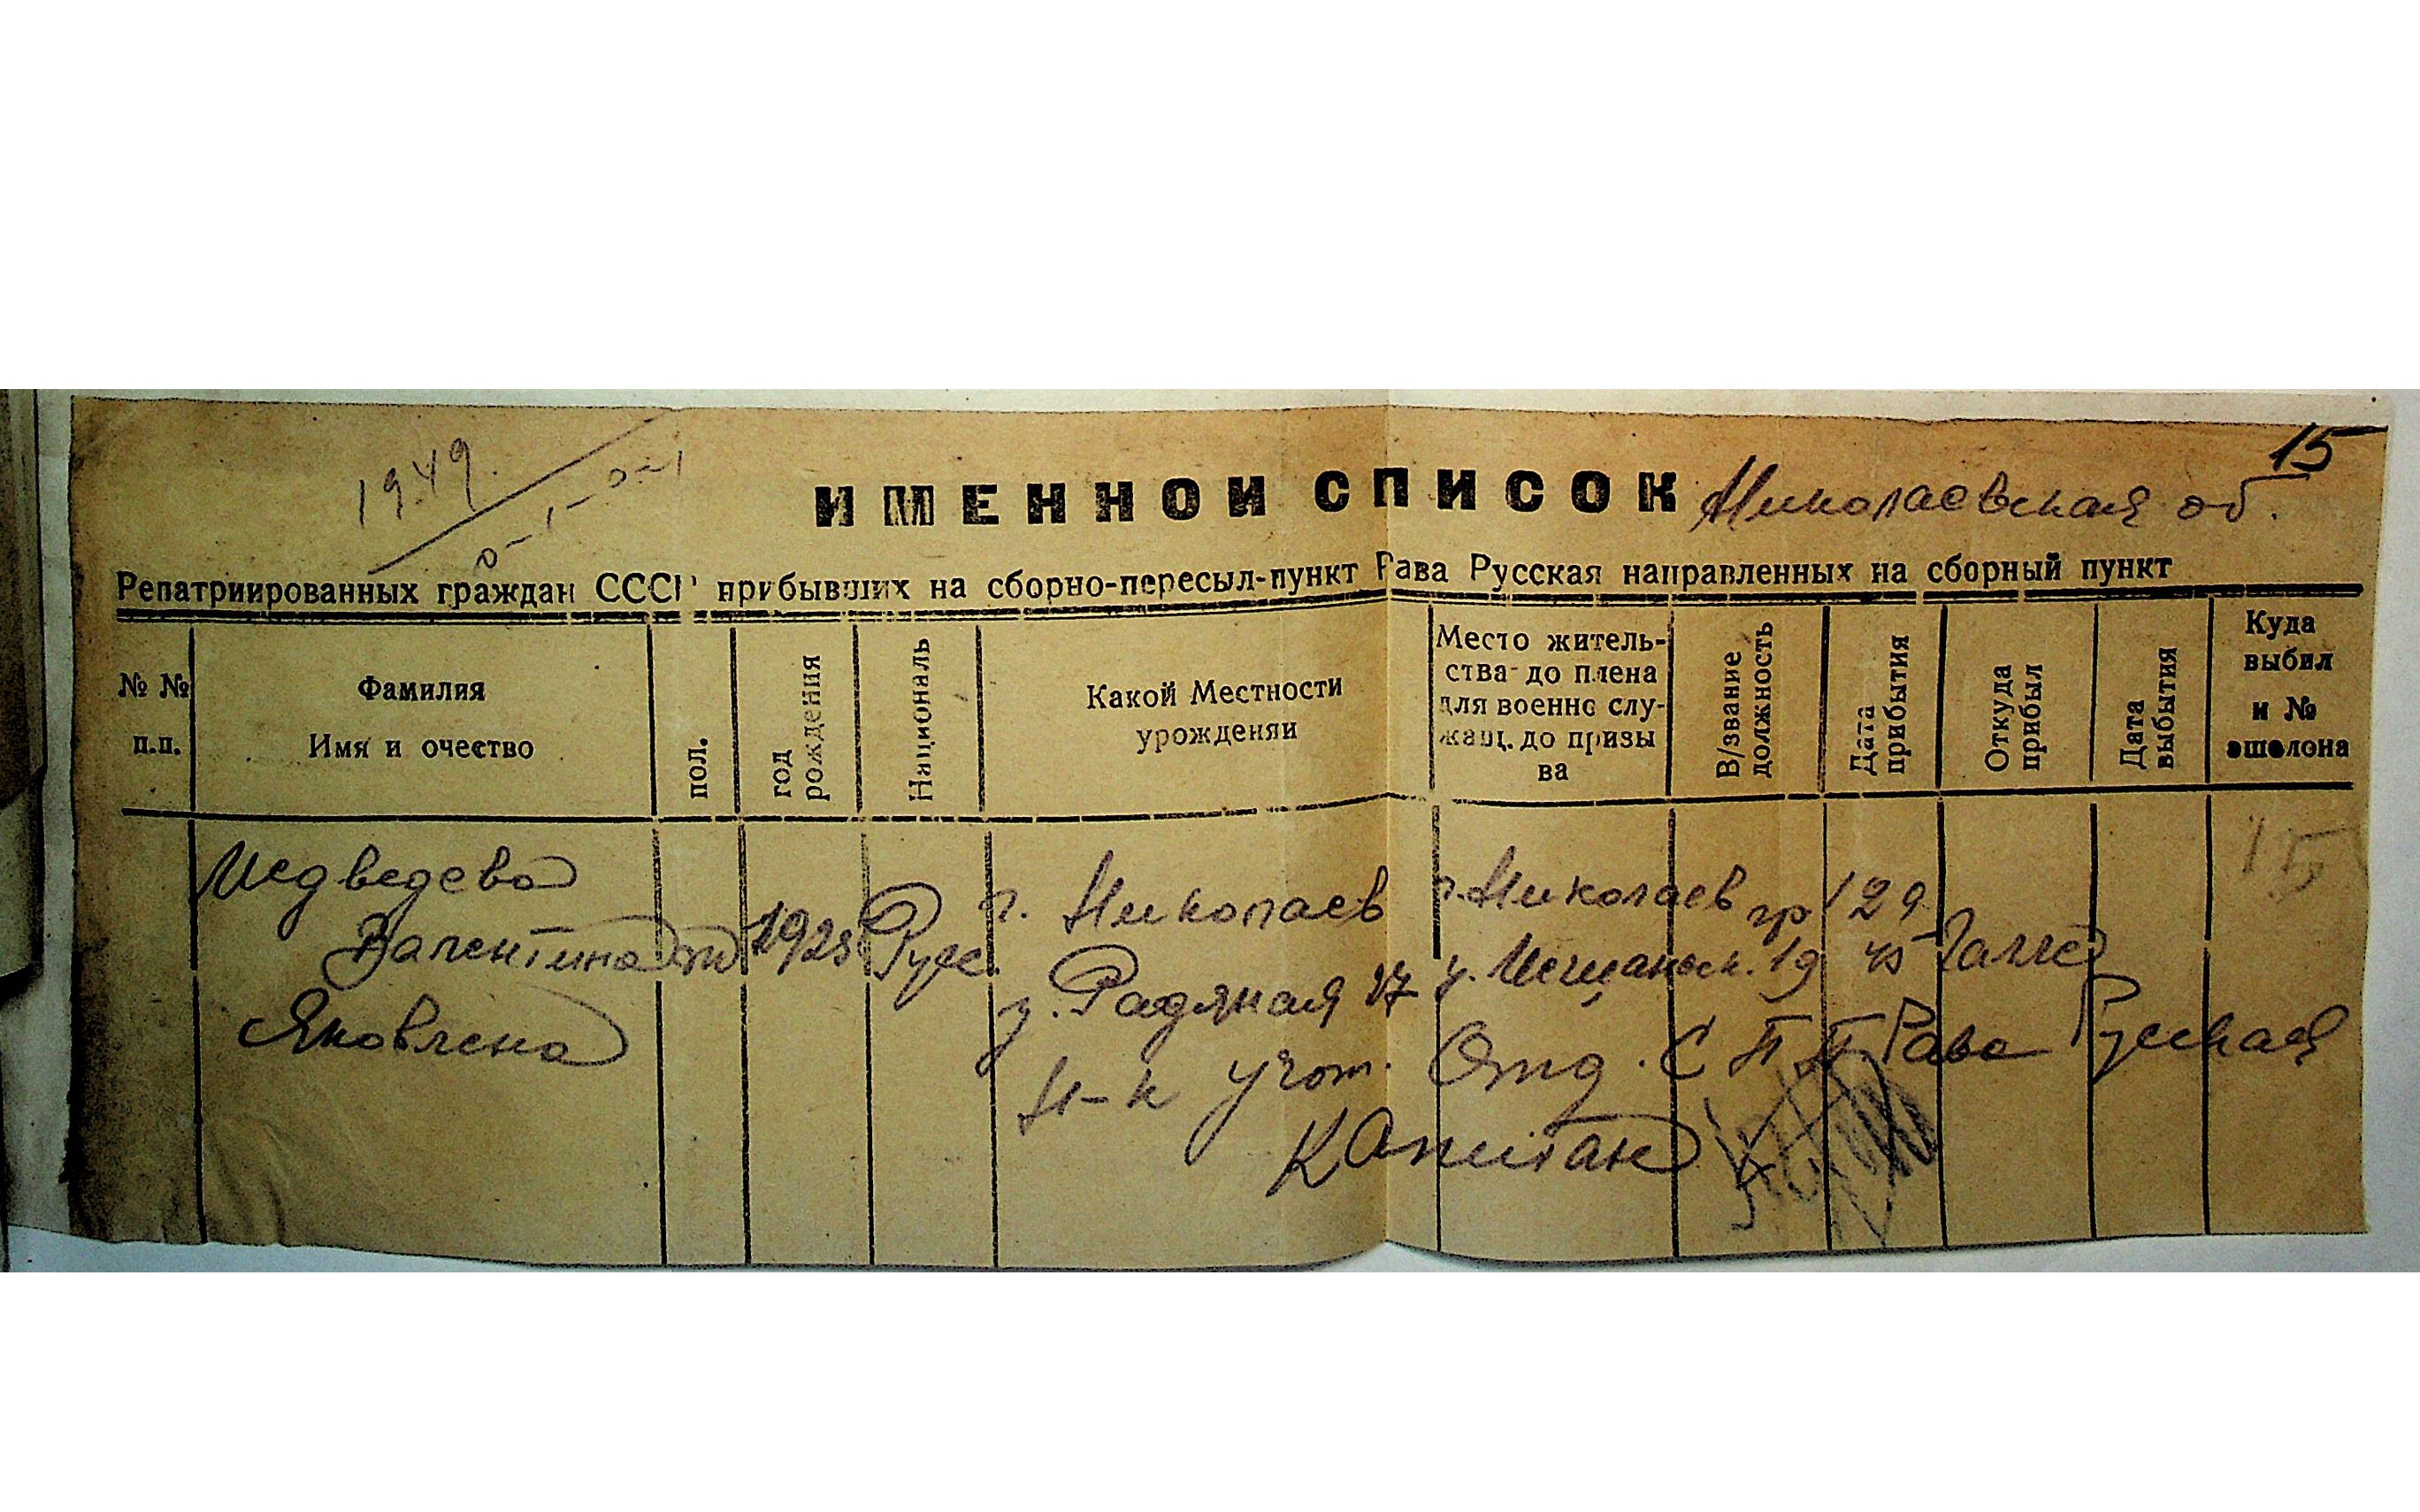 15
1949.
0-1-0-1
ИМЕННОЙ СПИСОК Николаевская об.
Репатриированных граждан СССР прибывших на сборно-пересыл-пункт Рава Русская направленных на сборный пункт
№ №
п.п.
Фамилия
Имя и очество
пол.
год
рождения
Националь
Какой Местности
урожденяи
Место житель-
ства до плена
для военно слу-
жащ. до призы
ва
В/звание
должность
Дата
прибытия
Откуда
прибыл
Дата
выбытия
Куда
выбил
и №
эшелона
Медведева
Валентина
Яковлена
ж
1925
Русс.
г. Николаев
у. Радяная 27
г. Николаев
у. Мещанск. 19
гр
129
45
Галле
Н-к Учот. Отд. С П П Рава Русская
Капитан